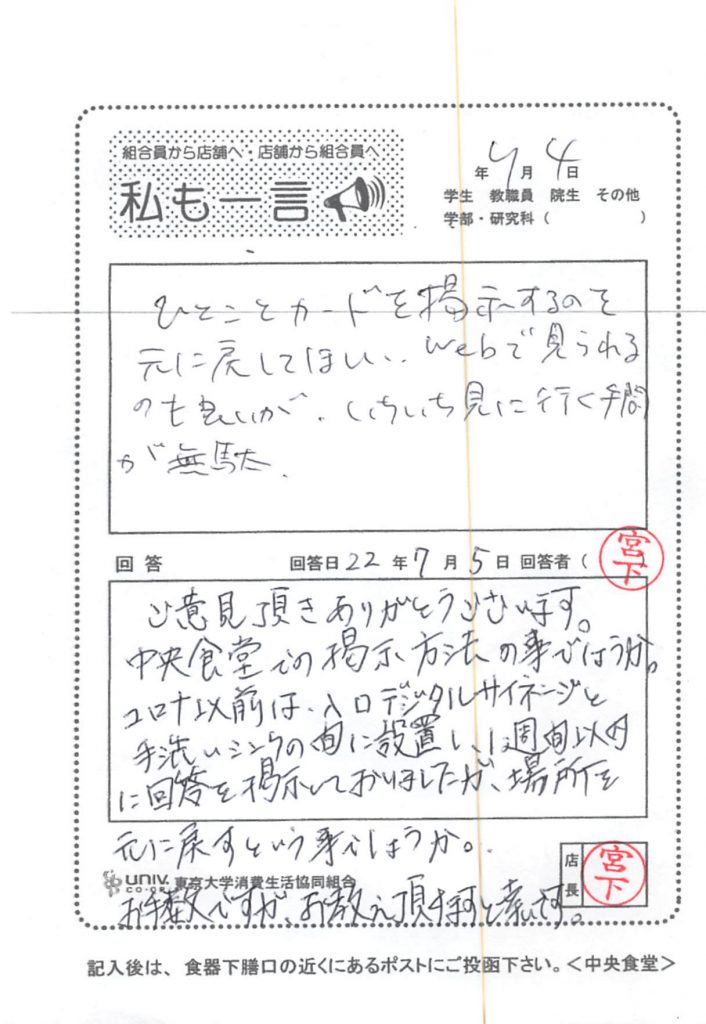 組合員から店舗へ・店舗から組合員へ
私も一言
年 7月 4日
学生 教職員 院生 その他
学部・研究科（ ）
ひとことカードを掲示するのを
元に戻してほしい、webで見られる
のも良いが、いちいち見に行く手間
が無駄、
回答 回答日 22年 7月 5日 回答者（ 宮下
ご意見頂きありがとうございます。
中央食堂での掲示方法の事でしょうか。
コロナ以前は、入口デジタルサイネージと
手洗いシンクの間に設置し、1週間以内
に回答を掲示しておりましたが、場所を
元に戻すという事でしょうか。
UNIV. CO-OP 東京大学消費生活協同組合
店長 宮下
お手数ですが、お教え頂けますと幸いです。
記入後は、食器下膳口の近くにあるポストにご投函下さい。＜中央食堂＞